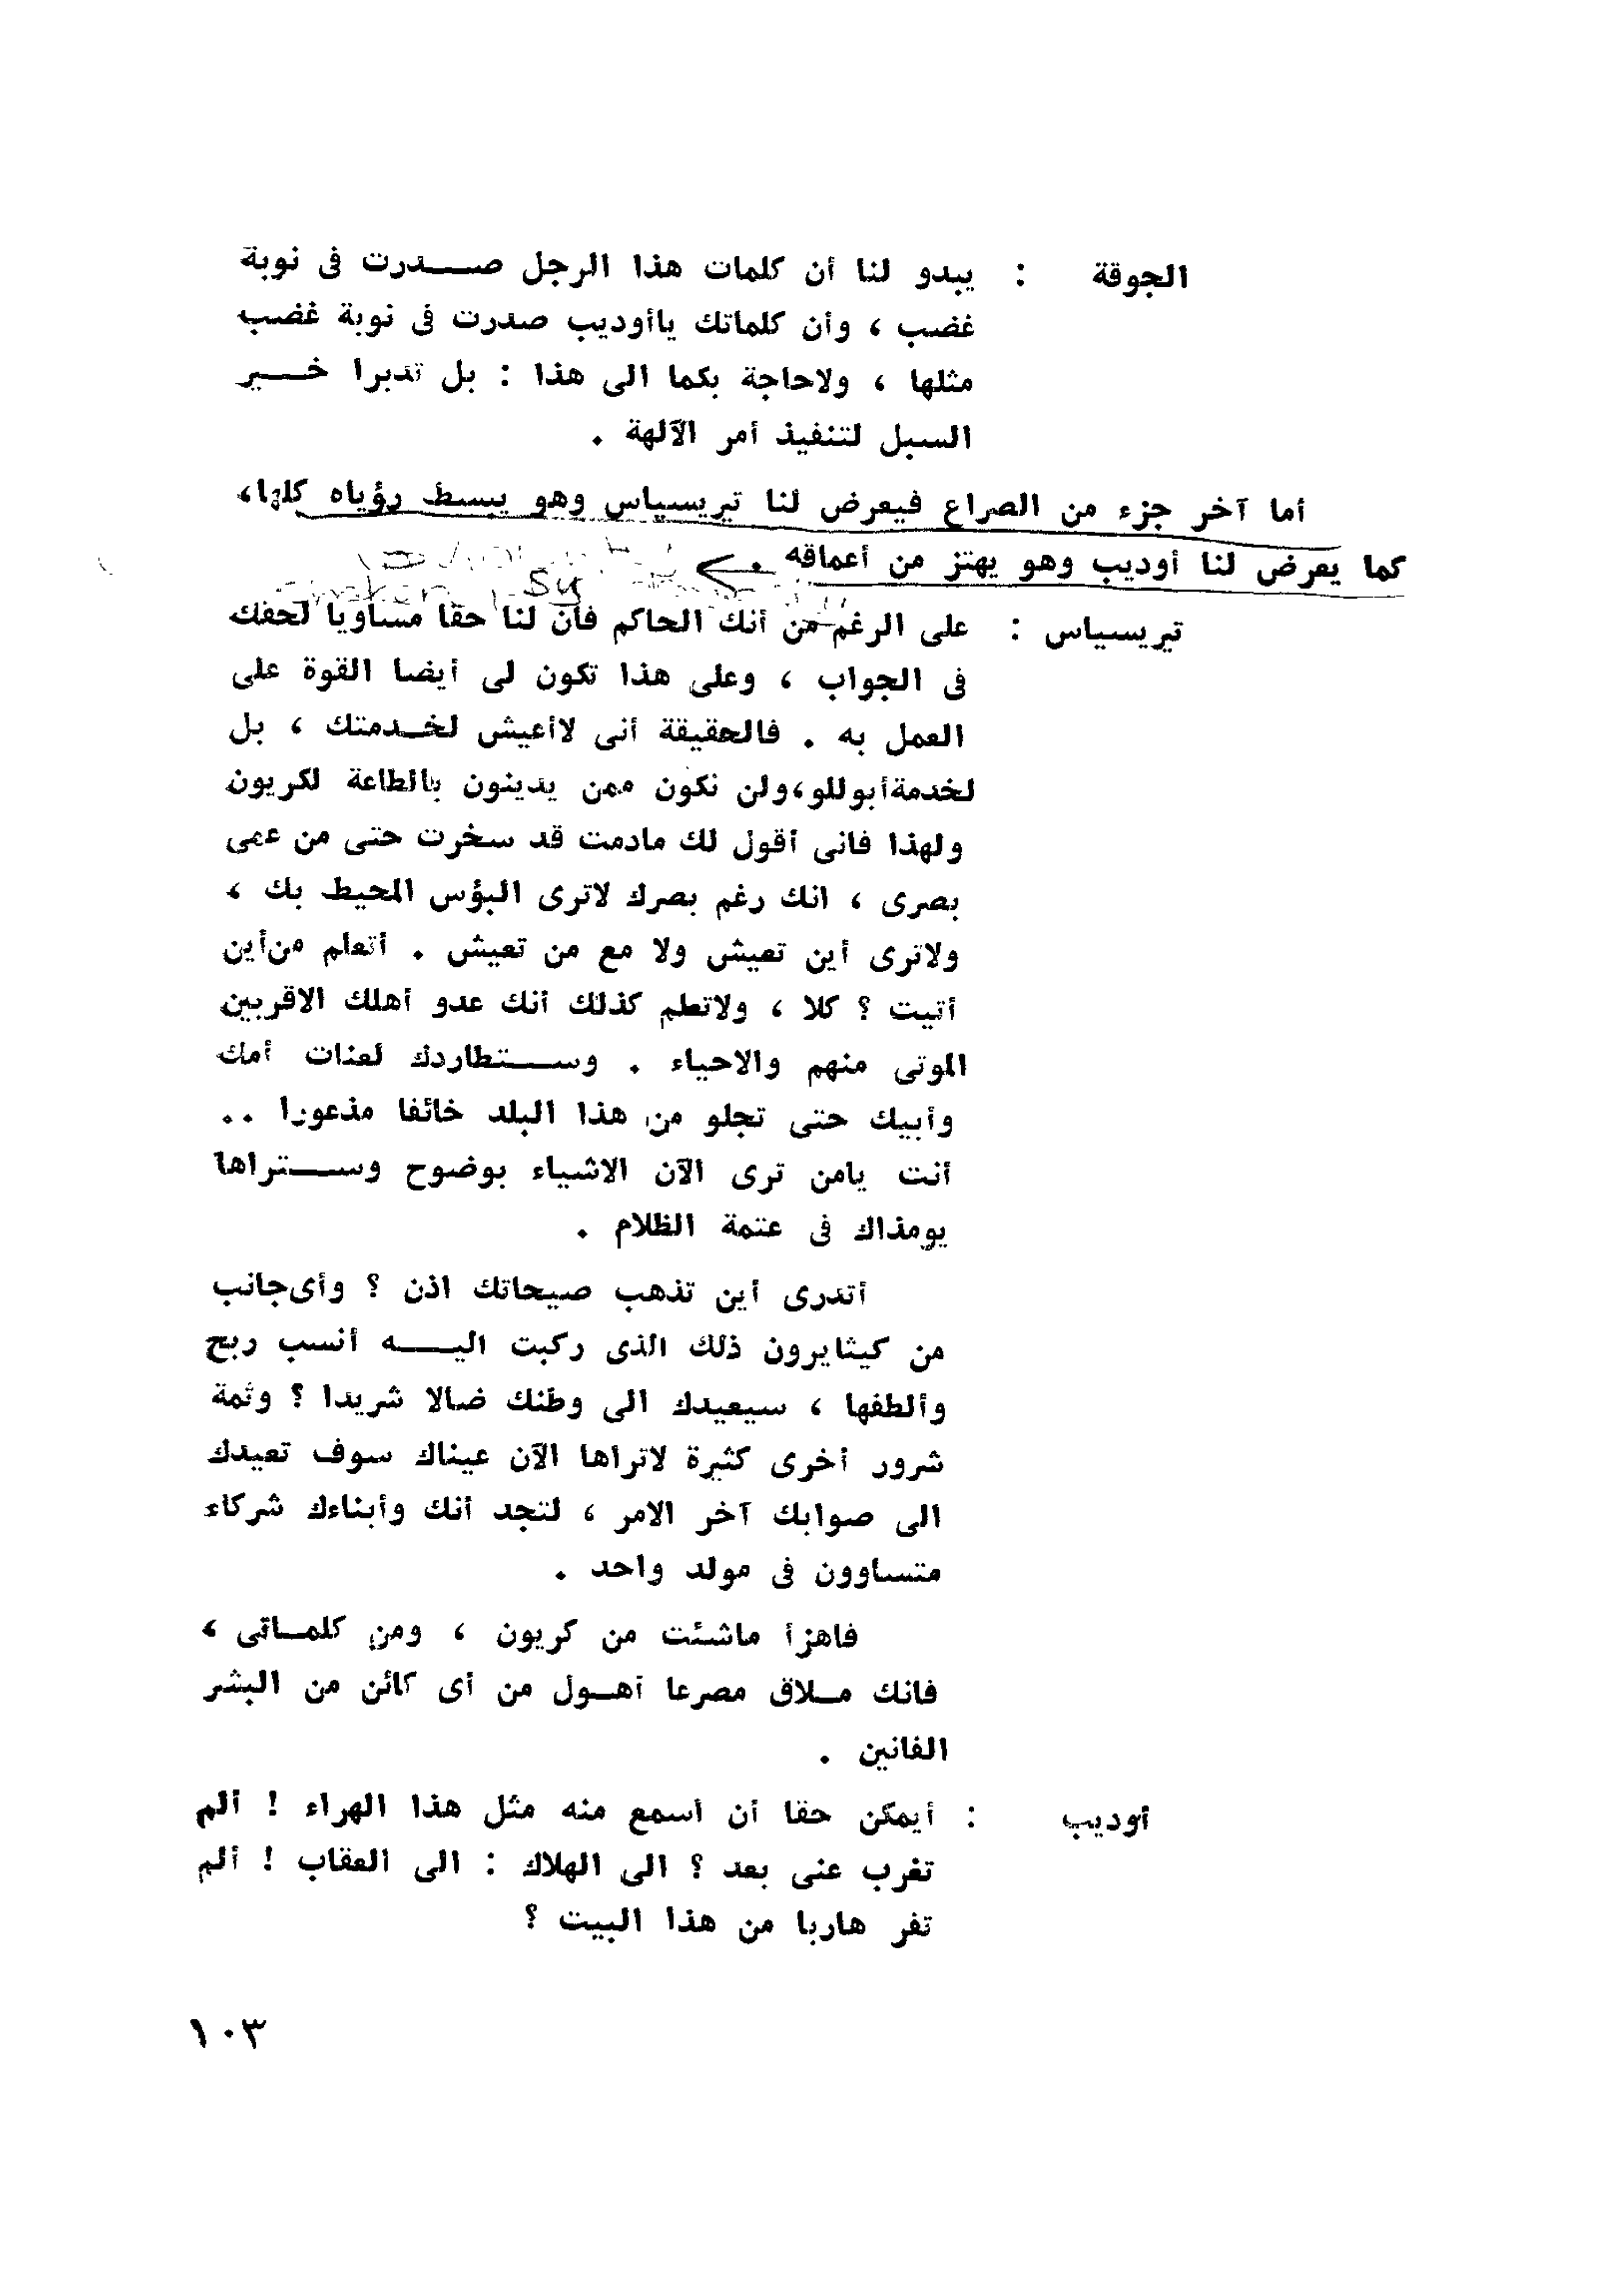 الجوقة : يبدو لنا أن كلمات هذا الرجل صــدرت فى نوبة
غضب ، وأن كلماتك ياأوديب صدرت فى نوبة غضب
مثلها ، ولاحاجة بكما الى هذا : بل تدبرا خــير
السبل لتنفيذ أمر الآلهة .
أما آخر جزء من الصراع فيعرض لنا تيريسياس وهو يبسط رؤياه كلها،
كما يعرض لنا أوديب وهو يهتز من أعماقه .
by
تيريسياس : على الرغم من أنك الحاكم فان لنا حقا مساويا لحقك
فى الجواب ، وعلى هذا تكون لى أيضا القوة على
العمل به . فالحقيقة أنى لاأعيش لخــدمتك ، بل
لخدمةأبوللو،ولن نكون ممن يدينون بالطاعة لكريون
ولهذا فانى أقول لك مادمت قد سخرت حتى من عمى
بصرى ، انك رغم بصرك لاترى البؤس المحيط بك ،
ولاترى أين تعيش ولا مع من تعيش . أتعلم من أين
أتيت ؟ كلا ، ولاتعلم كذلك أنك عدو أهلك الاقربين
الموتى منهم والاحياء . وســتطاردك لعنات أمك
وأبيك حتى تجلو من هذا البلد خائفا مذعورا ..
أنت يامن ترى الآن الاشياء بوضوح وســتراها
يومذاك فى عتمة الظلام .
أتدرى أين تذهب صيحاتك اذن ؟ وأى جانب
من كيثايرون ذلك الذى ركبت اليــه أنسب ريح
وألطفها ، سيعيدك الى وطنك ضالا شريدا ؟ وثمة
شرور أخرى كثيرة لاتراها الآن عيناك سوف تعيدك
الى صوابك آخر الامر ، لتجد أنك وأبناءك شركاء
متساوون فى مولد واحد .
فاهزأ ماشئت من كريون ، ومن كلمــاتى ،
فانك مــلاق مصرعا أهــول من أى كائن من البشر
الفانين .
أوديب : أيمكن حقا أن أسمع منه مثل هذا الهراء ! ألم
تغرب عنى بعد ؟ الى الهلاك : الى العقاب ! ألم
تفر هاربا من هذا البيت ؟
١٠٣